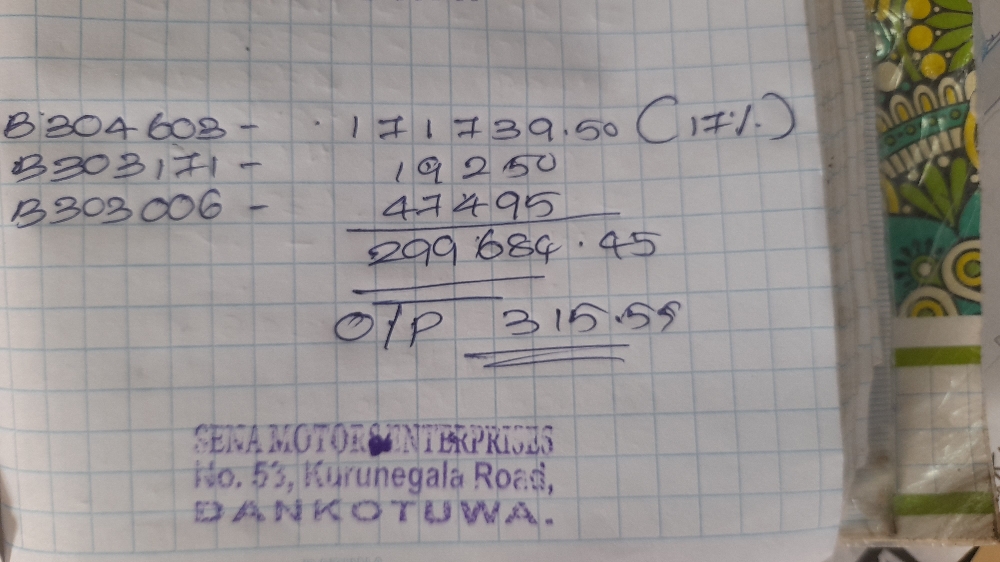 B304603 - 171739.50 (17%)
B303171 - 19250
B303006 - 47495
299684.45
O/P 315.55
SENA MOTOR ENTERPRISES
No. 53, Kurunegala Road,
DANKOTUWA.